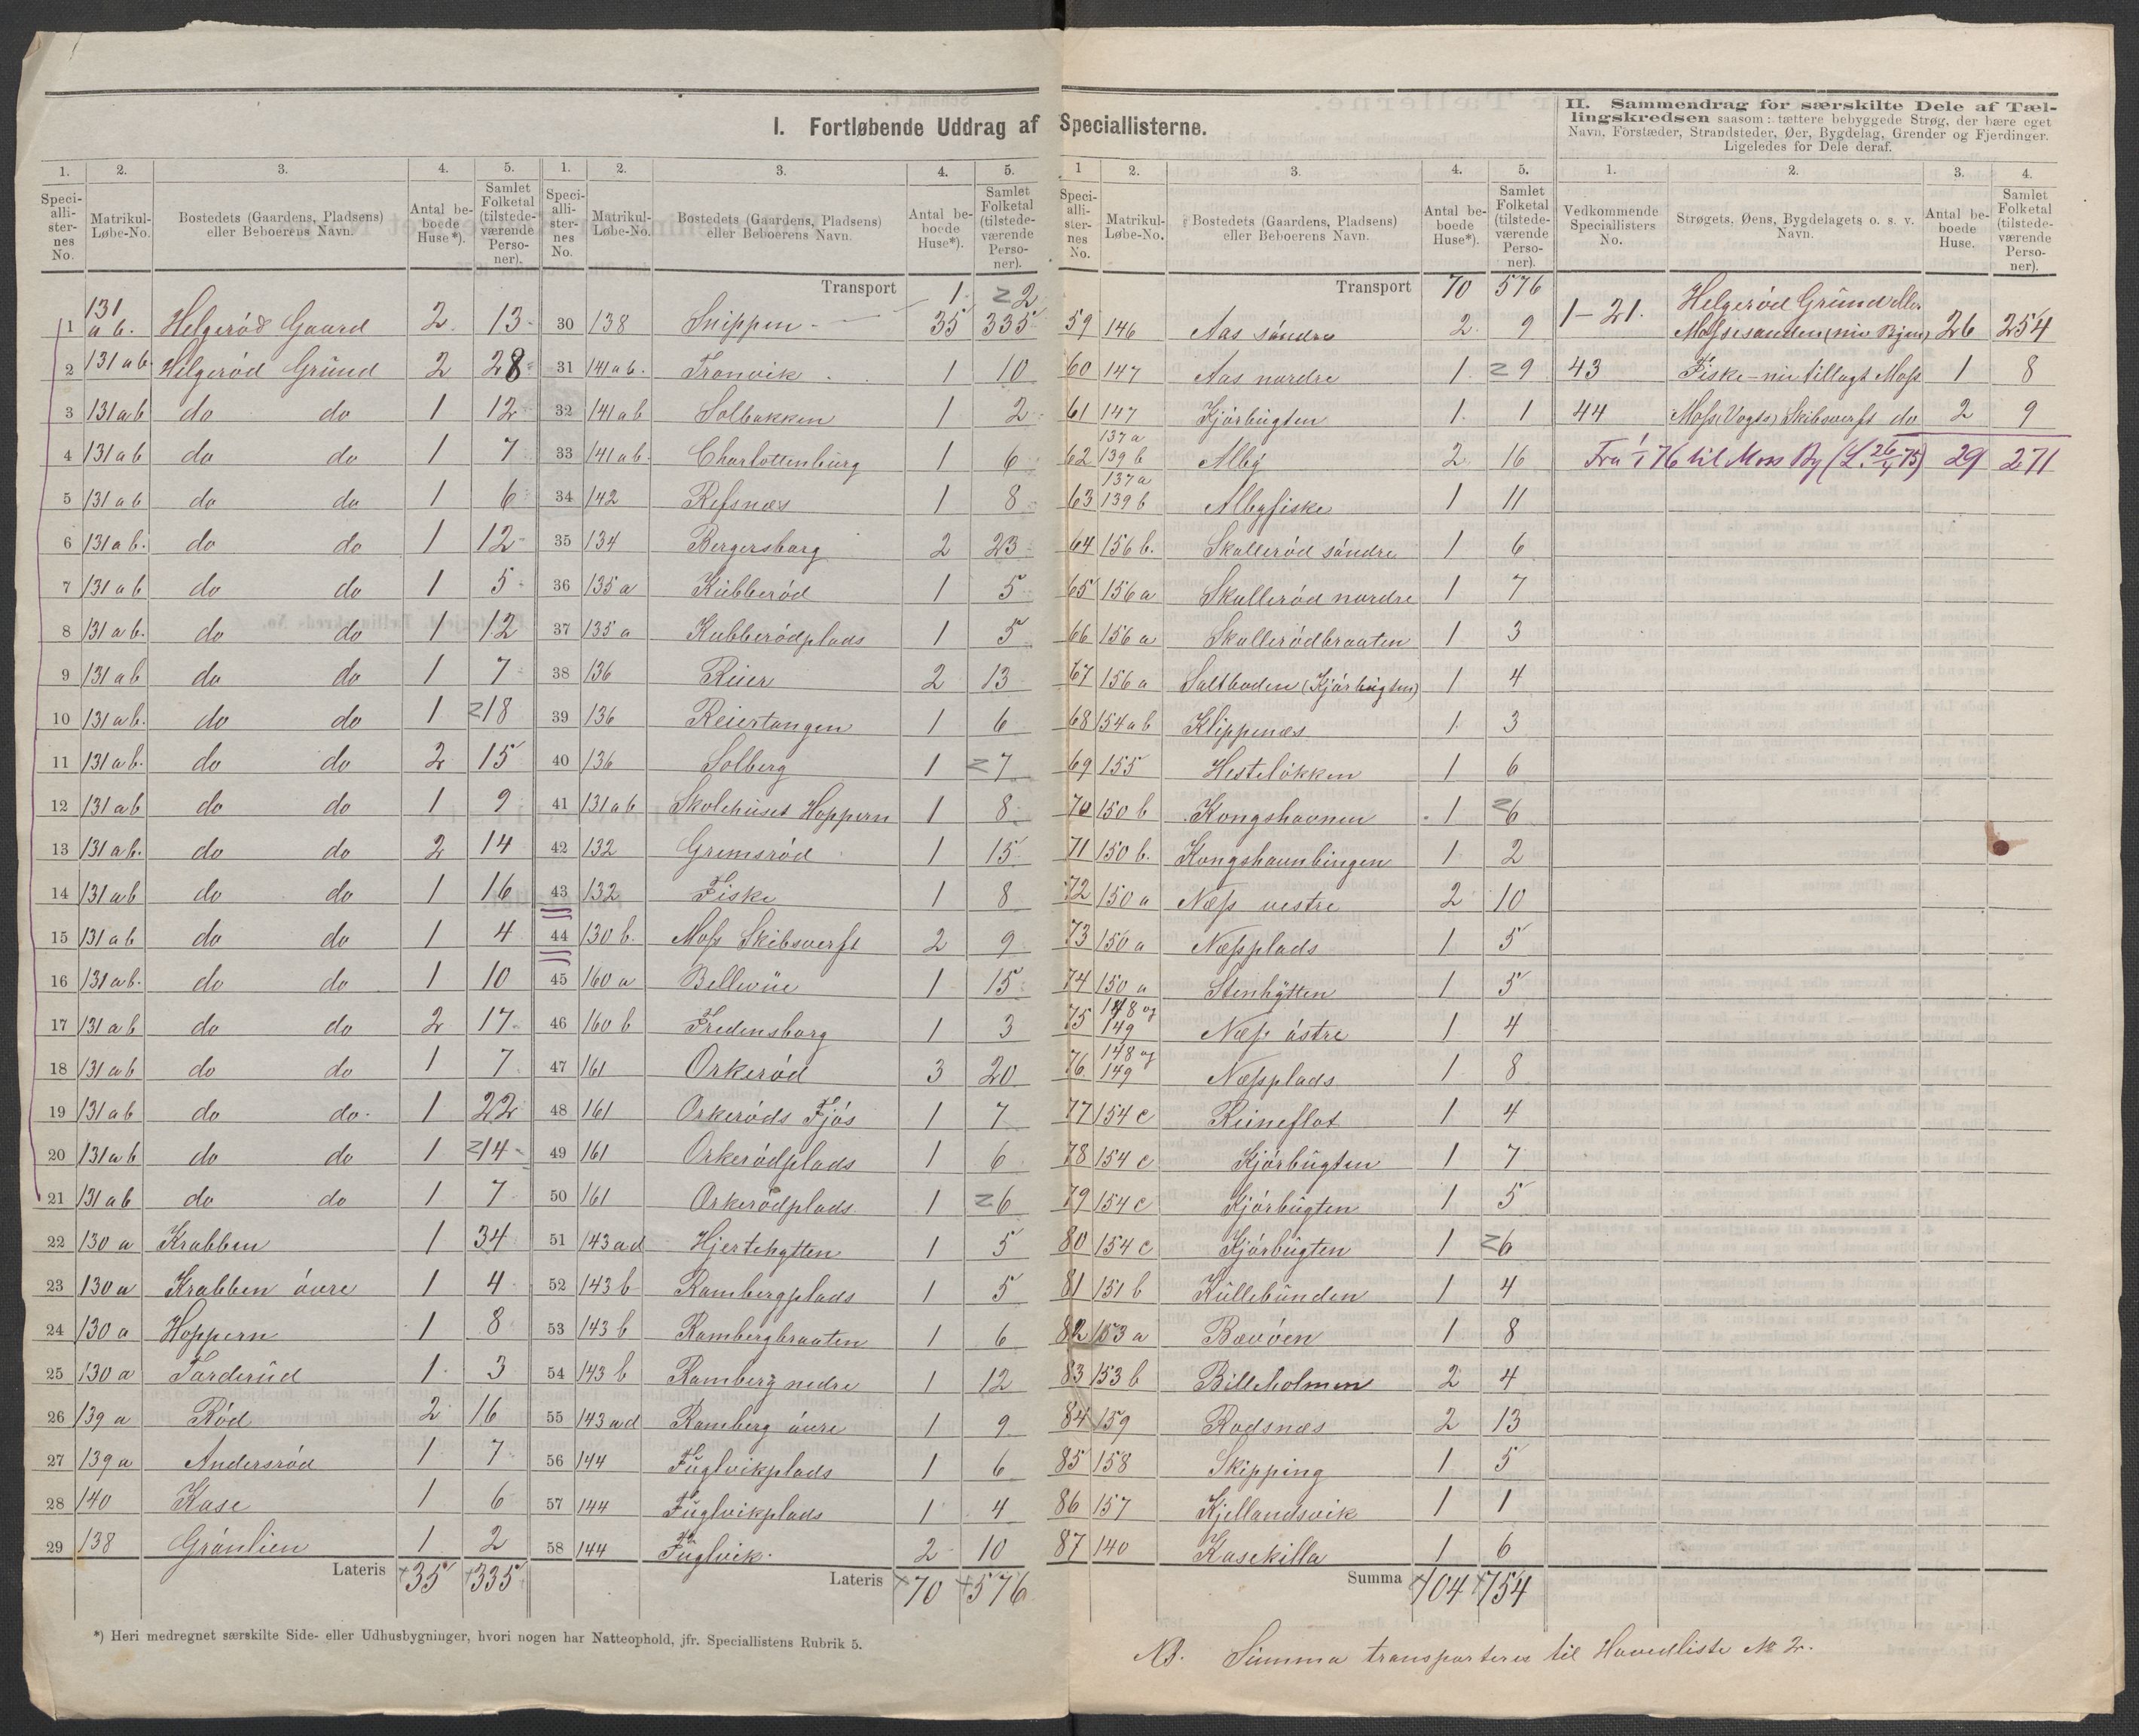 I. Fortløbende Uddrag af Speciallisterne.
1. 2. 3. 4. 5.
Speciallisternes No. Matrikul-Løbe-No. Bostedets (Gaardens, Pladsens) eller Beboerens Navn. Antal beboede Huse*). Samlet Folketal (tilstedeværende Personer).
1 131 a b. Helgerød Gaard 2 13
2 131 a b Helgerød Gründ 2 28
3 131 a b do do 1 12
4 131 a b do do 1 7
5 131 a b do do 1 6
6 131 a b. do do 1 12
7 131 a b do do 1 5
8 131 a b. do do 1 12
9 131 a b do do 1 7
10 131 a b. do do 1 18
11 131 a b. do do 2 15
12 131 a b do do 1 9
13 131 a b. do do 2 14
14 131 a b do do 1 16
15 131 a b do do 1 4
16 131 a b. do do 1 10
17 131 a b do do 2 17
18 131 a b do do 1 7
19 131 a b do do 1 22
20 131 a b do do 1 14
21 131 a b do do 1 7
22 130 a Krabben 1 34
23 130 a Krabben övre 1 4
24 130 a Hoppern 1 8
25 130 a Tarderüd 1 3
26 139 a Rød 2 16
27 139 a Andersrød 1 7
28 140 Kase 1 6
29 138 Grönlien 1 2
Lateris 35 335
*) Heri medregnet særskilte Side- eller Udhusbygninger, hvori nogen har Natteophold, jfr. Speciallistens Rubrik 5.
1. 2. 3. 4. 5.
Speciallisternes No. Matrikul-Løbe-No. Bostedets (Gaardens, Pladsens) eller Beboerens Navn. Antal beboede Huse*). Samlet Folketal (tilstedeværende Personer).
Transport 35 335
30 138 Snippen 1 2
31 141 a b. Tronvik 1 10
32 141 a b Solbakken 1 2
33 141 a b. Charlottenbürg 1 6
34 142 Refsnæs 1 8
35 134 Bergersborg 2 23
36 135 a Kübberød 1 5
37 135 a Kubberødplads 1 5
38 136 Reier 2 13
39 136 Reiertangen 1 6
40 136 Solberg 1 7
41 131 a b Skolehüset Hoppern 1 8
42 132 Gremsrød 1 15
43 132 Fiske 1 8
44 130 b. Moss Skibsverft 2 9
45 160 a Bellevüe 1 15
46 160 b Fredensborg 1 3
47 161 Orkerød 3 20
48 161 Orkerøds Fjös 1 7
49 161 Orkerødplads 1 6
50 161 Orkerødplads 1 6
51 143 a d Hjertehytten 1 5
52 143 b Rambergplads 1 5
53 143 b Rambergbraaten 1 6
54 143 b Ramberg nedre 1 12
55 143 a d Ramberg övre 1 9
56 144 Füglvikplads 1 6
57 144 Füglvikplads 1 4
58 144 Füglvik 2 10
Lateris 70 576
1 2. 3. 4. 5.
Speciallisternes No. Matrikul-Løbe-No. Bostedets (Gaardens, Pladsens) eller Beboerens Navn. Antal beboede Huse*). Samlet Folketal (tilstedeværende Personer).
Transport 70 576
59 146 Aas söndre 2 9
60 147 Aas nordre 1 9
61 147 Kjörbügten 1 1
62 137 a 139 b Alby 2 16
63 137 a 139 b Albyfiske 1 11
64 156 b. Skallerød söndre 1 6
65 156 a Skallerød nordre 1 7
66 156 a Skallerødbraaten 1 3
67 156 a Saltboden (Kjörbügten) 1 4
68 154 a b Klippenæs 1 3
69 155 Hestelökken 1 6
70 150 b Kongshavnen 1 6
71 150 b. Kongshavnbingen 1 2
72 150 a Næss vestre 2 10
73 150 a Næssplads 1 5
74 150 a Stenhytten 1 5
75 148 og 149 Næss östre 1 4
76 148 og 149 Næssplads 1 8
77 154 c Reineflot 1 4
78 154 c Kjörbügten 1 7
79 154 c Kjörbügten 1 5
80 154 c Kjörbügten 1 6
81 151 b Küllebünden 1 4
82 153 a Bævöen 1 8
83 153 b Billeholmen 2 4
84 159 Rodsnæs 2 13
85 158 Skipping 1 5
86 157 Kjellandsvik 1 1
87 140 Kasekilla 1 6
Summa 104 754
NB. Summa transporteres til Hovedliste № 2.
II. Sammendrag for særskilte Dele af Tællingskredsen saasom: tættere bebyggede Strøg, der bære eget
Navn, Forstæder, Strandsteder, Øer, Bygdelag, Grender og Fjerdinger.
Ligeledes for Dele deraf.
1. 2. 3. 4.
Vedkommende Speciallisters No. Strøgets, Øens, Bygdelagets o. s. v. Navn. Antal beboede Huse. Samlet Folketal (tilstedeværende Personer).
1–21. Helgerød Gründ eller Mossesanden 26 254
43 Fiske – nu tillagt Moss 1 8
44 Moss (Vogts) Skibsverft do 2 9
Fra 1/1 76 til Moss By (L. 26/4 75) 29 271